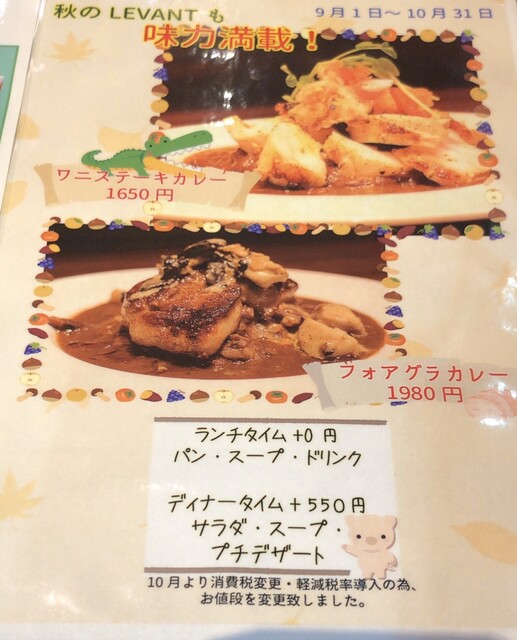 秋の LEVANT も
9月1日～10月31日
味力満載！
ワニステーキカレー
1650円
フォアグラカレー
1980円
ランチタイム +0 円
パン・スープ・ドリンク
ディナータイム + 550円
サラダ・スープ・
プチデザート
10月より消費税変更・軽減税率導入の為、
お値段を変更致しました。